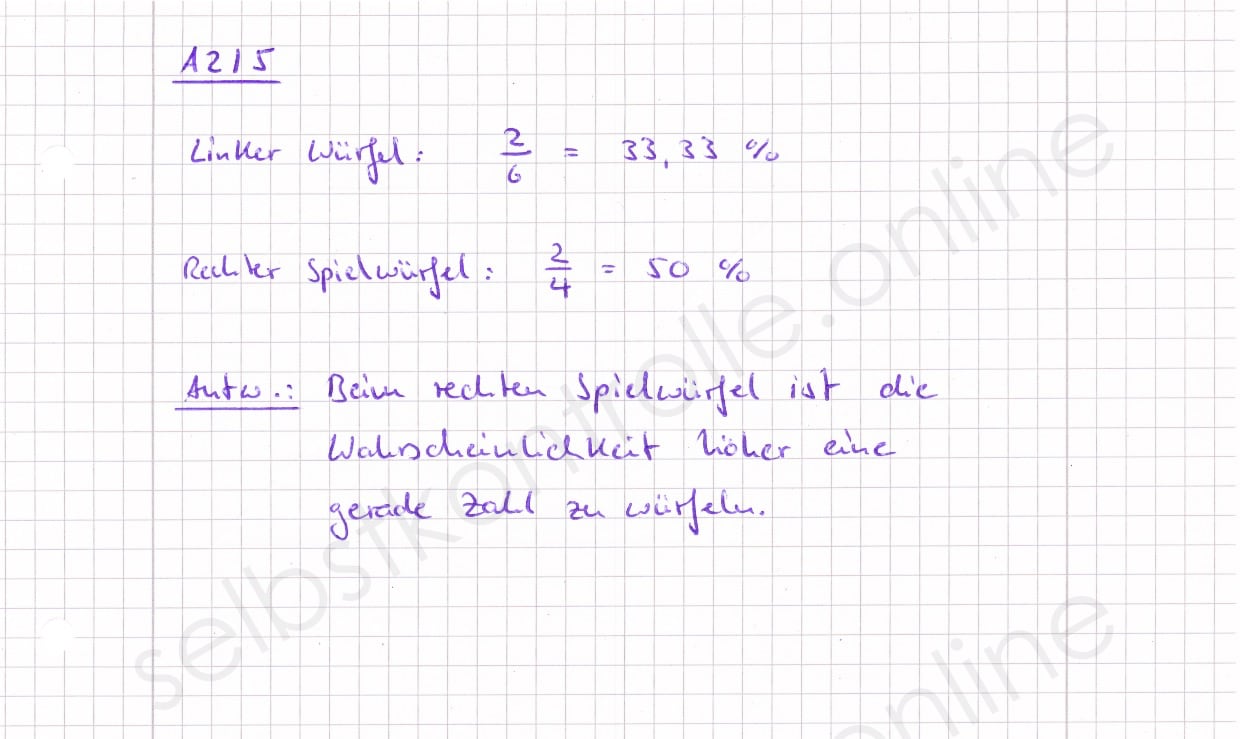 A215
Linker Würfel: 2/6 = 33,33 %
Rechter Spielwürfel: 2/4 = 50 %
Antw.: Beim rechten Spielwürfel ist die
Wahrscheinlichkeit höher eine
gerade Zahl zu würfeln.
selbstkontrolle.online
online